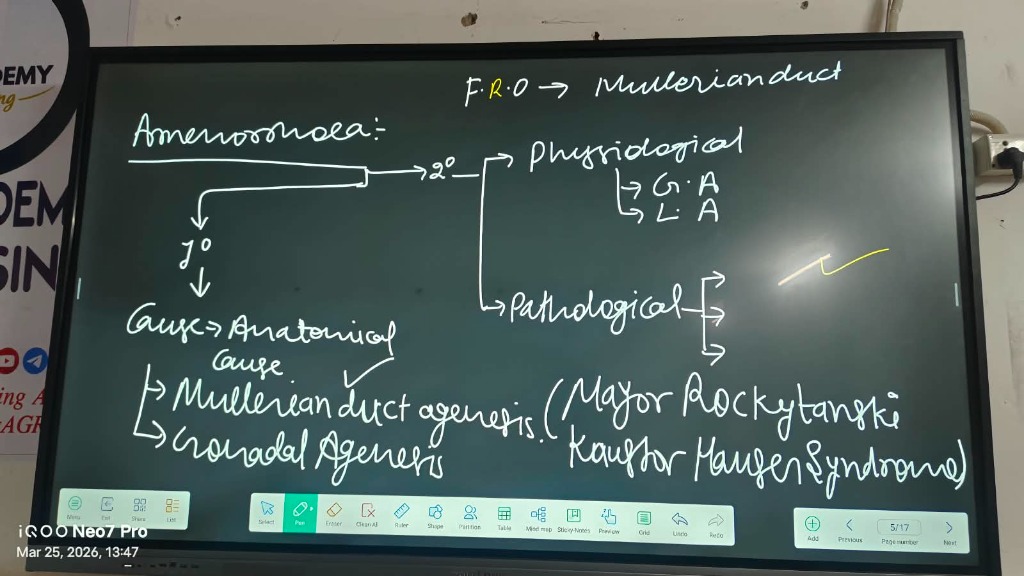 F.R.O → Mullerian duct
Amenorrhoea:-
2°
Physiological
G.A
L.A
1°
Pathological
Cause → Anatomical
Cause
Mullerian duct agenesis. (Mayor Rockytanski
Gonadal Agenesis
Kaustor Hauser Syndrome)
DEMY
ng
DEM
SIN
ing A
AGR
Menu
Exit
Share
List
Select
Pen
Eraser
Clean All
Ruler
Shape
Partition
Table
Mind map
Sticky-Notes
Preview
Grid
Undo
Redo
Add
Previous
5/17
Page number
Next
iQOO Neo7 Pro
Mar 25, 2026, 13:47